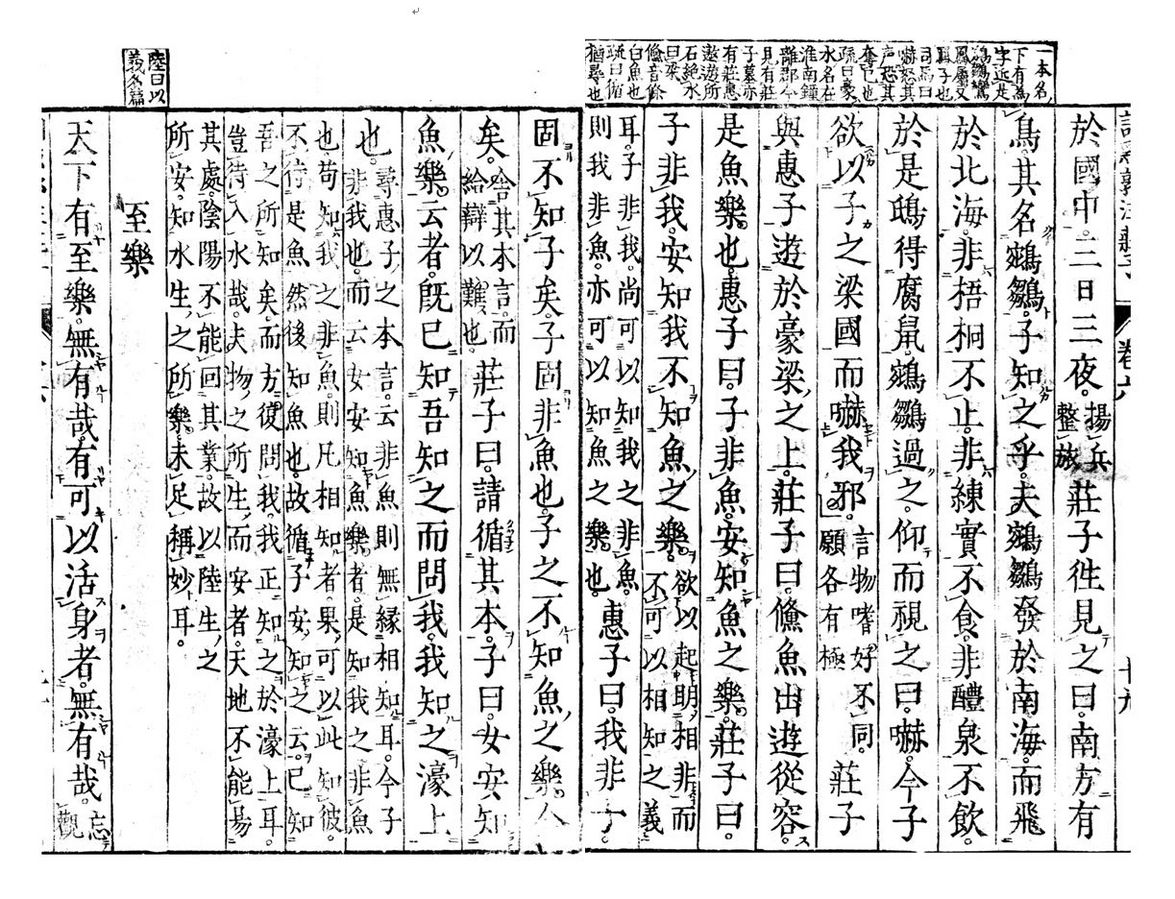 一本名
下有為
字近是
鵷鶵鸞
鳳屬又
司馬曰
嚇怒其
声恐其
奪已也
疏曰豪
水名在
淮南鍾
離郡今
見有莊
子墓亦
有莊惠
遨遊所
石絶水
曰梁
儵音條
白魚也
疏曰循
猶尋也
卷六
於國中。三日三夜。揚兵整旅莊子徃見之曰。南方有
鳥其名鵷鶵。子知之乎。夫鵷鶵發於南海。而飛
於北海。非梧桐不止。非練實不食。非醴泉不飲。
於是鴟得腐鼠。鵷鶵過之。仰而視之曰。嚇。今子
欲以子之梁國而嚇我邪。言物嗜好不同。願各有極莊子
與惠子遊於豪梁之上。莊子曰。儵魚出遊從容。
是魚樂也。惠子曰。子非魚。安知魚之樂。莊子曰。
子非我。安知我不知魚之樂。欲以起明相非而不可以相知之義
耳。子非我。尚可以知我之非魚。則我非魚。亦可以知魚之樂也。惠子曰。我非子。
固不知子矣。子固非魚也。子之不知魚之樂
矣。舍其本言。而給辯以難也。莊子曰。請循其本。子曰。女安知
魚樂。云者。既已知吾知之而問我。我知之濠上
也。尋惠子之本言。云非魚則無緣相知耳。今子非我也。而云女安知魚樂者。是知我之非魚
也苟知我之非魚。則凡相知者。果可以此知彼。不待是魚然後知魚也故循子安知之云。已知
吾之所知矣。而方復問我。我正知之於濠上耳。豈待入水哉。夫物之所生。而安者。天地不能易
其處。陰陽不能回其業。故以陸生之所安。知水生之所樂。未足稱妙耳。
陸曰以
義名篇
至樂
天下有至樂。無有哉。有可以活身者。無有哉。忘觀